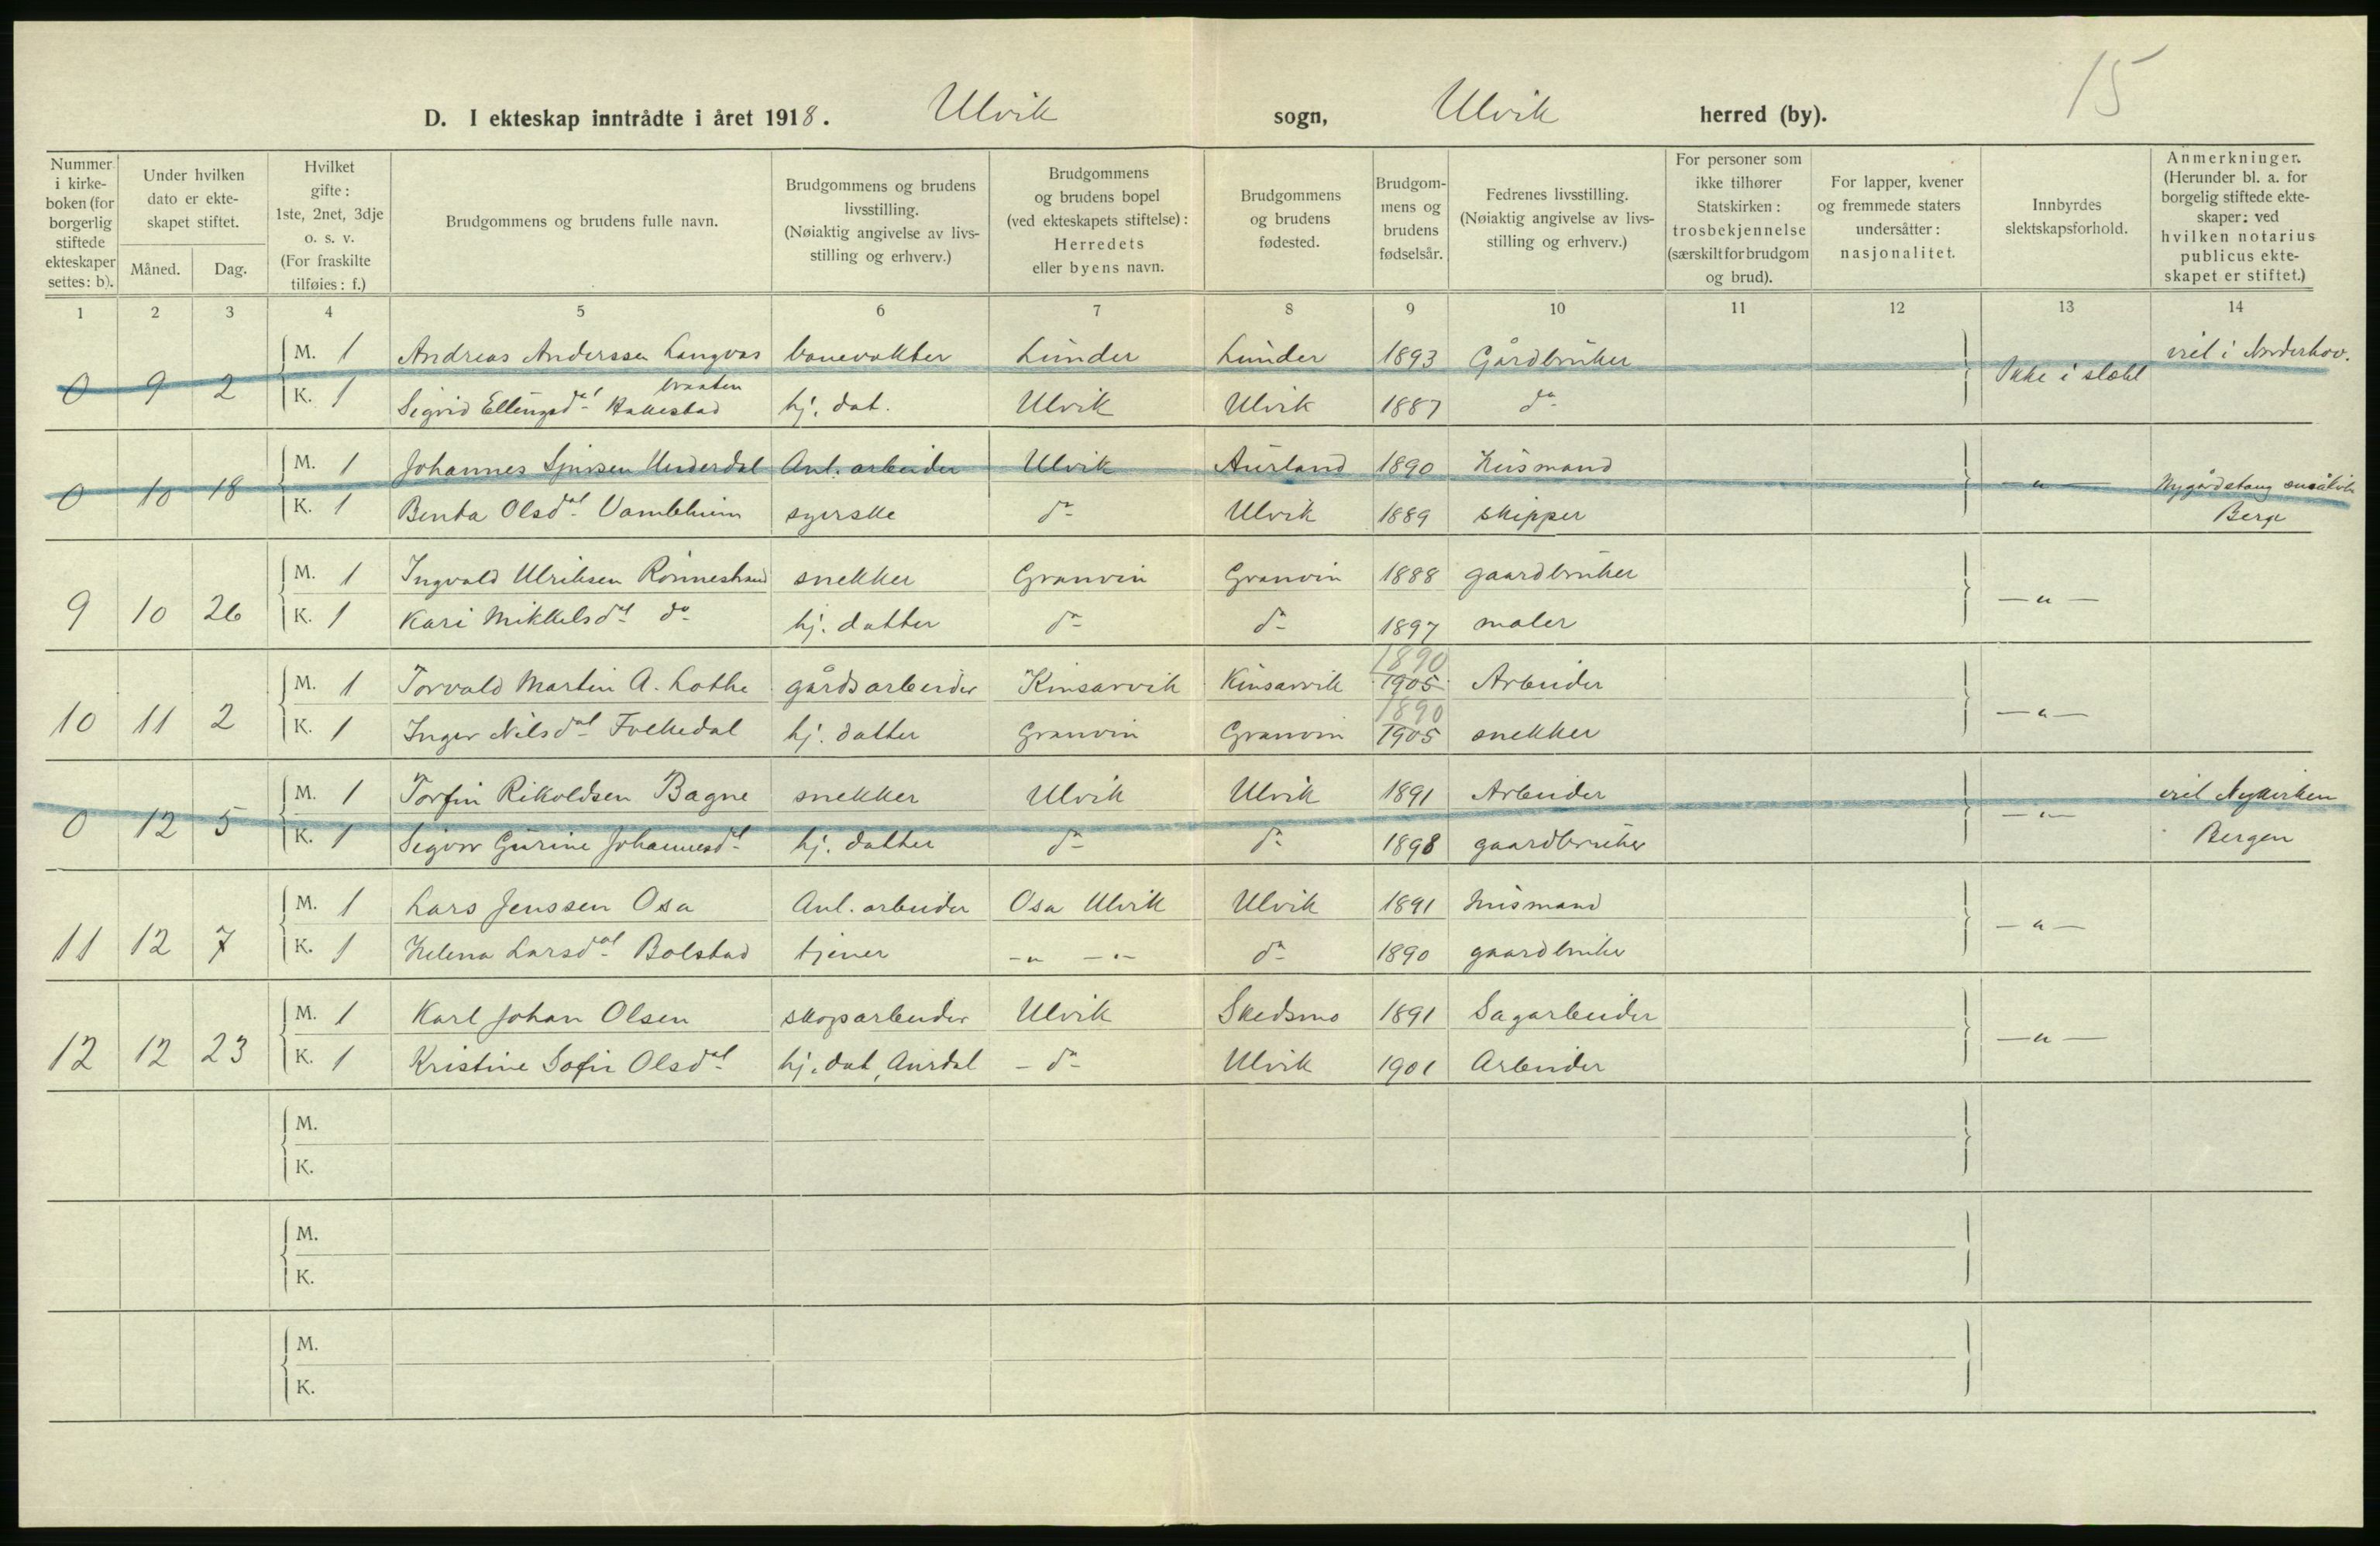 15
D. I ekteskap inntrådte i året 1918. Ulvik sogn, Ulvik herred (by).
Nummer i kirke-boken (for borgerlig stiftede ekteskaper settes: b).
Under hvilken dato er ekte-skapet stiftet.
Måned. Dag.
Hvilket gifte: 1ste, 2net, 3dje o. s. v. (For fraskilte tilføies: f.)
Brudgommens og brudens fulle navn.
Brudgommens og brudens livsstilling. (Nøiaktig angivelse av livs-stilling og erhverv.)
Brudgommens og brudens bopel (ved ekteskapets stiftelse): Herredets eller byens navn.
Brudgommens og brudens fødested.
Brudgom-mens og brudens fødselsår.
Fedrenes livsstilling. (Nøiaktig angivelse av livs-stilling og erhverv.)
For personer som ikke tilhører Statskirken: trosbekjennelse (særskilt for brudgom og brud).
For lapper, kvener og fremmede staters undersåtter: nasjonalitet.
Innbyrdes slektskapsforhold.
Anmerkninger. (Herunder bl. a. for borgelig stiftede ekte-skaper: ved hvilken notarius publicus ekte-skapet er stiftet.)
1 2 3 4 5 6 7 8 9 10 11 12 13 14
M. 1 Andreas Anderssen Langvas banevakter Lunder Lunder 1893 Gårdbruker viel i Norderhov.
0 9 2 Ikke i slækt
braaten
K. 1 Sigrid Ellingsdat Hallestad hj. dat. Ulvik Ulvik 1887 do
M. 1 Johannes Underdal Anl. arbeider Ulvik Aurland 1890 Husmand
0 10 18 — " — Nygårdstang
K. 1 Benta Olsdat Vambheim syerske do Ulvik 1889 skipper Berge
M. 1 Ingvald Ulriksen Rønnestrand snekker Granvin Granvin 1888 gaardbruker
9 10 26 — " —
K. 1 Kari Mikkelsdat do hj. datter do do 1897 maler
1890
M. 1 Torvald Martin A. Lothe gårdsarbeider Kinsarvik Kinsarvik 1905 Arbeider
10 11 2 — " —
1890
K. 1 Inger Nilsdat Folkedal hj. datter Granvin Granvin 1905 snekker
M. 1 Torfin Rikoldsen Bagne snekker Ulvik Ulvik 1891 Arbeider viel Nykirken
0 12 5 — " —
K. 1 Sigvor Gurine Johannesdt hj. datter do do 1898 gaardbruker Bergen
M. 1 Lars Jenssen Osa Anl. arbeider Osa Ulvik Ulvik 1891 husmand
11 12 7 — " —
K. 1 Helena Larsdat Bolstad tjener — " — " — do 1890 gaardbruker
M. 1 Karl Johan Olsen skogsarbeider Ulvik Skedsmo 1891 Sagarbeider
12 12 23 — " —
K. 1 Kristine Sofie Olsdat hj. dat, Aurdal – do Ulvik 1901 Arbeider
M.
K.
M.
K.
M.
K.